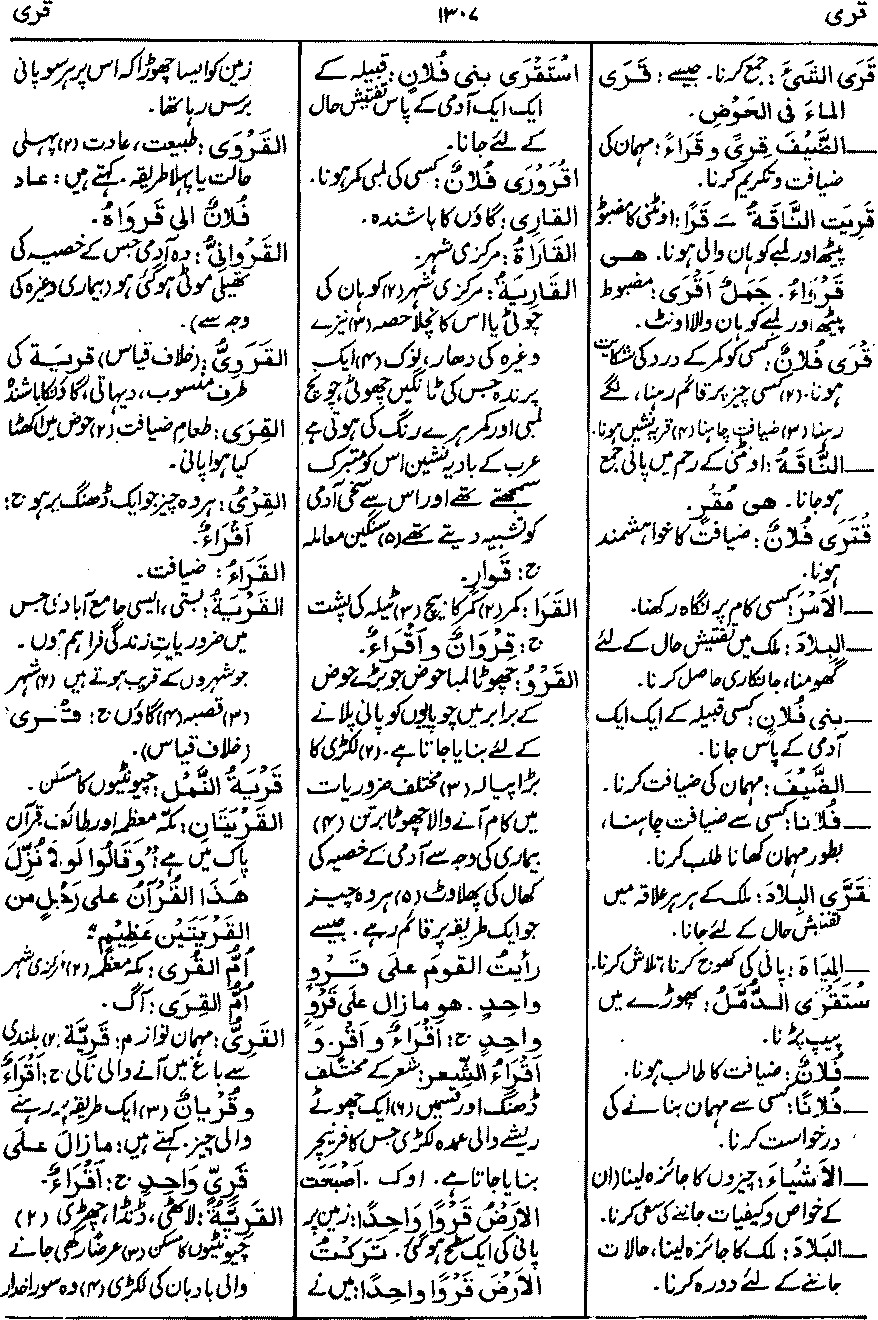 قری
۱۳۰۷
قری
قَرَی الشَّیءَ: جمع کرنا۔ جیسے: قَرَی
الماءَ فی الحَوْضِ۔
ـــ الضَّیْفَ قِرًی وقَرَاءً: مہمان کی
ضیافت وتکریم کرنا۔
قَرِیَت النَّاقَةُ ـَ قَرًا: اونٹنی کا مضبوط
پیٹھ اور لمبے کوہان والی ہونا۔ ھی
قَرْوَاءُ۔ جَمَلٌ اَقْرَی: مضبوط
پیٹھ اور لمبے کوہان والا اونٹ۔
قَرَی فُلَانٌ: کسی کو کمر کے درد کی شکایت
ہونا۔ (۲) کسی چیز پر قائم رہنا، لگے
رہنا (۳) ضیافت چاہنا (۴) قریہ نشیں ہونا۔
ـــ النَّاقَةُ: اونٹنی کے رحم میں پانی جمع
ہوجانا۔ ھی مُقْرٍ۔
قْتَرَی فُلَانٌ: ضیافت کا خواہشمند
ہونا۔
ـــ الاَمْرَ: کسی کام پر نگاہ رکھنا۔
ـــ البِلَادَ: ملک میں تفتیش حال کے لئے
گھومنا، جانکاری حاصل کرنا۔
ـــ بنی فُلَانٍ: کسی قبیلہ کے ایک ایک
آدمی کے پاس جانا۔
ـــ الضَّیْفَ: مہمان کی ضیافت کرنا۔
ـــ فُلَانًا: کسی سے ضیافت چاہنا،
بطور مہمان کھانا طلب کرنا۔
قَرَّی البِلَادَ: ملک کے ہر ہر علاقہ میں
تفتیش حال کے لئے جانا۔
ـــ المِیَاہَ: پانی کی کھوج کرنا، تلاش کرنا۔
سْتَقْرَی الدُّمَّلُ: پھوڑے میں
پیپ پڑنا۔
ـــ فُلَانٌ: ضیافت کا طالب ہونا۔
ـــ فُلَانًا: کسی سے مہمان بنانے کی
درخواست کرنا۔
ـــ الاَشْیَاءَ: چیزوں کا جائزہ لینا (ان
کے خواص وکیفیات جاننے کی سعی کرنا۔
ـــ البِلَادَ: ملک کا جائزہ لینا، حالات
جاننے کے لئے دورہ کرنا۔
اسْتَقْرَی بنی فُلَانٍ: قبیلہ کے
ایک ایک آدمی کے پاس تفتیش حال
کے لئے جانا۔
اقْرَوْرَی فُلَانٌ: کسی کی لمبی کمر ہونا۔
القَارِی: گاؤں کا باشندہ۔
القَارَاةُ: مرکزی شہر۔
القَارِیَةُ: مرکزی شہر (۲) کوہان کی
چوٹی یا اس کا نچلا حصہ (۳) نیزے
وغیرہ کی دھار، نوک (۴) ایک
پرندہ جس کی ٹانگیں چھوٹی، چونچ
لمبی اور کمر ہرے رنگ کی ہوتی ہے
عرب کے بادیہ نشین اس کو متبرک
سمجھتے تھے اور اس سے سخی آدمی
کو تشبیہ دیتے تھے (۵) سنگین معاملہ
ج: قَوَارٍ۔
القَرَا: کمر (۲) کمر کا بیچ (۳) ٹیلہ کی پشت
ج: قِرْوَانٌ واَقْرَاءٌ۔
القَرْوُ: چھوٹا لمبا حوض جو بڑے حوض
کے برابر میں چوپایوں کو پانی پلانے
کے لئے بنایا جاتا ہے۔ (۲) لکڑی کا
بڑا پیالہ (۳) مختلف ضروریات
میں کام آنے والا چھوٹا برتن (۴)
بیماری کی وجہ سے آدمی کے خصیہ کی
کھال کی پھلاوٹ (۵) ہر وہ چیز
جو ایک طریقہ پر قائم رہے۔ جیسے
رأیتُ القومَ علی قَرْوٍ
واحِدٍ۔ ھو مازال علی قَرْوٍ
واحِدٍ ج: اَقْرَاءٌ واَقْرٍ۔ وَ
اَقْرَاءُ الشِّعر: شعر کے مختلف
ڈھنگ اور قسمیں (۶) ایک چھوٹے
ریشے والی عمدہ لکڑی جس کا فرنیچر
بنایا جاتا ہے۔ اوک۔ اَصْبَحَت
الاَرْضُ قَرْوًا واحِدًا: زمین پر
پانی کی ایک سطح ہوگئی۔ تَرَکْتُ
الاَرْضَ قَرْوًا واحِدًا: میں نے
زمین کو ایسا چھوڑا کہ اس پر ہر سو پانی
برس رہا تھا۔
القَرْوَی: طبیعت، عادت (۲) پہلی
حالت یا پہلا طریقہ۔ کہتے ہیں: عاد
فُلَانٌ الی قَرْوَاهُ۔
القَرْوَانِیُّ: وہ آدمی جس کے خصیہ کی
تھیلی موٹی ہوگئی ہو (بیماری وغیرہ کی
وجہ سے)۔
القَرَوِیُّ: (خلاف قیاس) قریة کی
طرف منسوب، دیہاتی، گاؤں کا باشندہ
القِرَی: طعام ضیافت (۲) حوض میں اکٹھا
کیا ہوا پانی۔
القِرْیُ: ہر وہ چیز جو ایک ڈھنگ پر ہو ج:
اَقْرَاءٌ۔
القَرَاءُ: ضیافت۔
القَرْیَةُ: بستی، ایسی جامع آبادی جس
میں ضروریات زندگی فراہم ہوں۔
جو شہروں کے قریب ہوتے ہیں (۲) شہر
(۳) قصبہ (۴) گاؤں ج: قُرًی
(خلاف قیاس)۔
قَرْیَةُ النَّمْل: چیونٹیوں کا مسکن۔
القَرْیَتَان: مکہ معظمہ اور طائف۔ قرآن
پاک میں ہے: "وَقَالُوا لَوْلَا نُزِّلَ
ھَذَا القُرْآنُ علی رَجُلٍ من
القَرْیَتَیْن عَظِیْمٍ"
اُمُّ القُرَی: مکہ معظمہ (۲) مرکزی شہر
اُمُّ القِرَی: آگ۔
القَرِیُّ: مہمان نواز م: قَرِیَّة (۲) بلندی
سے باغ میں آنے والی نالی ج: اَقْرَاءٌ
وقُرْیَانٌ (۳) ایک طریقہ پہ رہنے
والی چیز۔ کہتے ہیں: مازالَ علی
قَرِیٍّ وَاحِدٍ ج: اَقْرَاءٌ۔
القَرِیَّةُ: لاٹھی، ڈنڈا، چھڑی (۲)
چیونٹیوں کا مسکن (۳) عرضًا رکھی جانے
والی بادبان کی لکڑی (۴) وہ سوراخدار